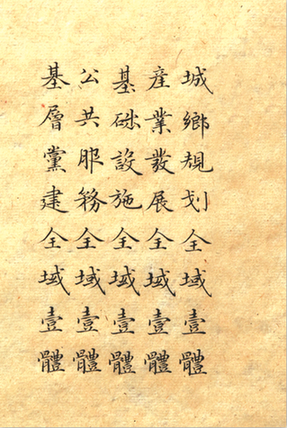 城鄉規划全域壹體
產業發展全域壹體
基础設施全域壹體
公共服務全域壹體
基層黨建全域壹體